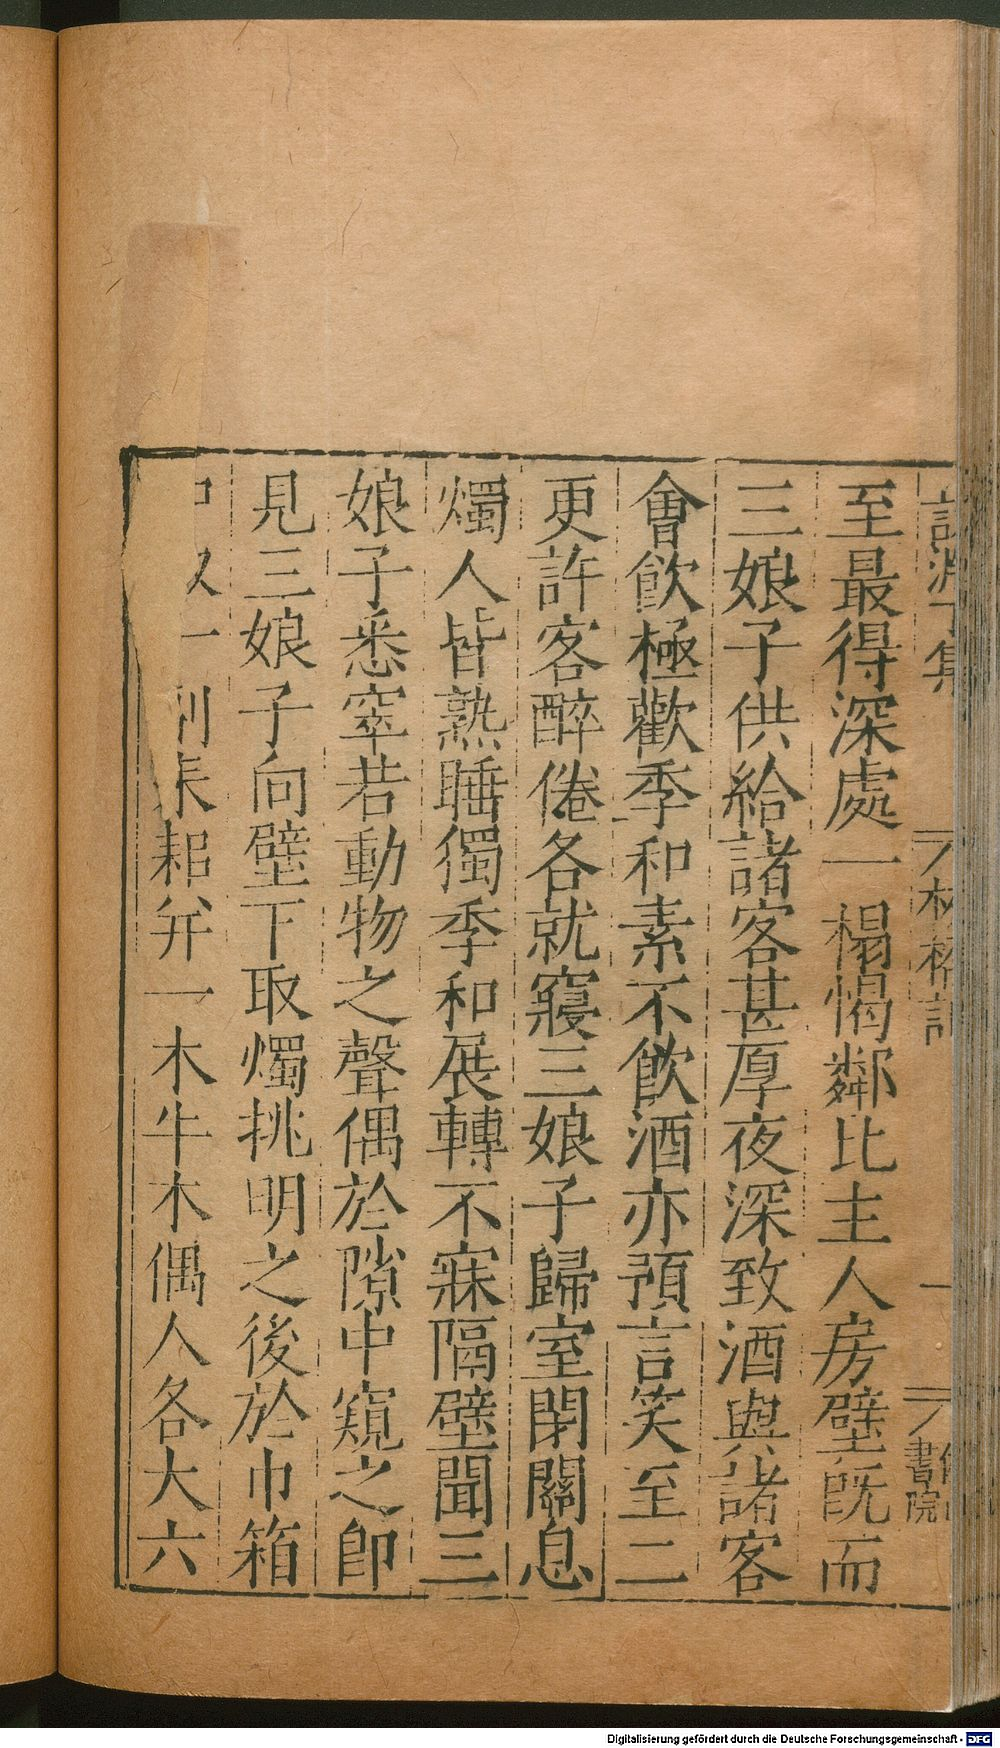 至最得深處一榻榻鄰比主人房壁旣而
三娘子供給諸客甚厚夜深致酒與諸客
會飮極歡季和素不飮酒亦預言笑至二
更許客醉倦各就寢三娘子歸室閉關息
燭人皆熟睡獨季和展轉不寐隔壁聞三
娘子悉窣若動物之聲偶於隙中窺之卽
見三娘子向壁下取燭挑明之後於巾箱
耒耜幷一木牛木偶人各大六
一
書院
Digitalisierung gefördert durch die Deutsche Forschungsgemeinschaft - DFG